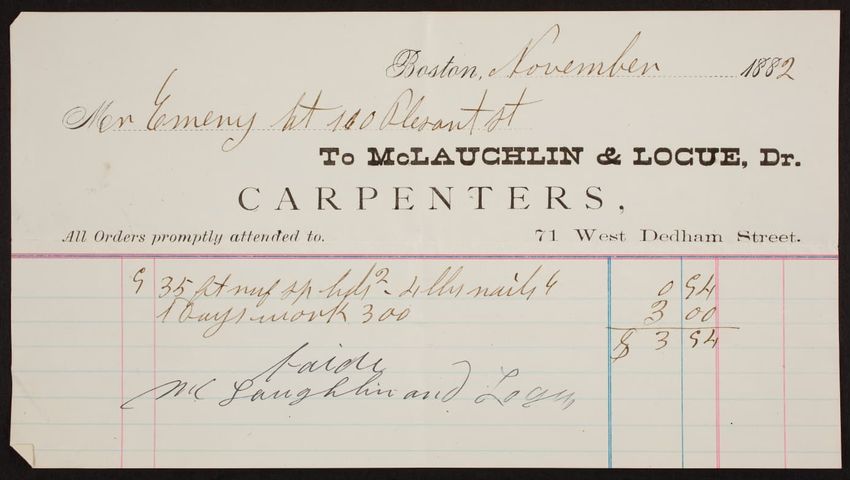 Boston, November 1882
Mr Emeny at 160 Plesant st
To McLAUCHLIN & LOCUE, Dr.
CARPENTERS,
All Orders promptly attended to. 71 West Dedham Street.
9 35 ft sp bds 2 - 4 lbs nails 4 0 94
1 Days work 300 3 00
$ 3 94
Paide
Mc Laughlin and Logue